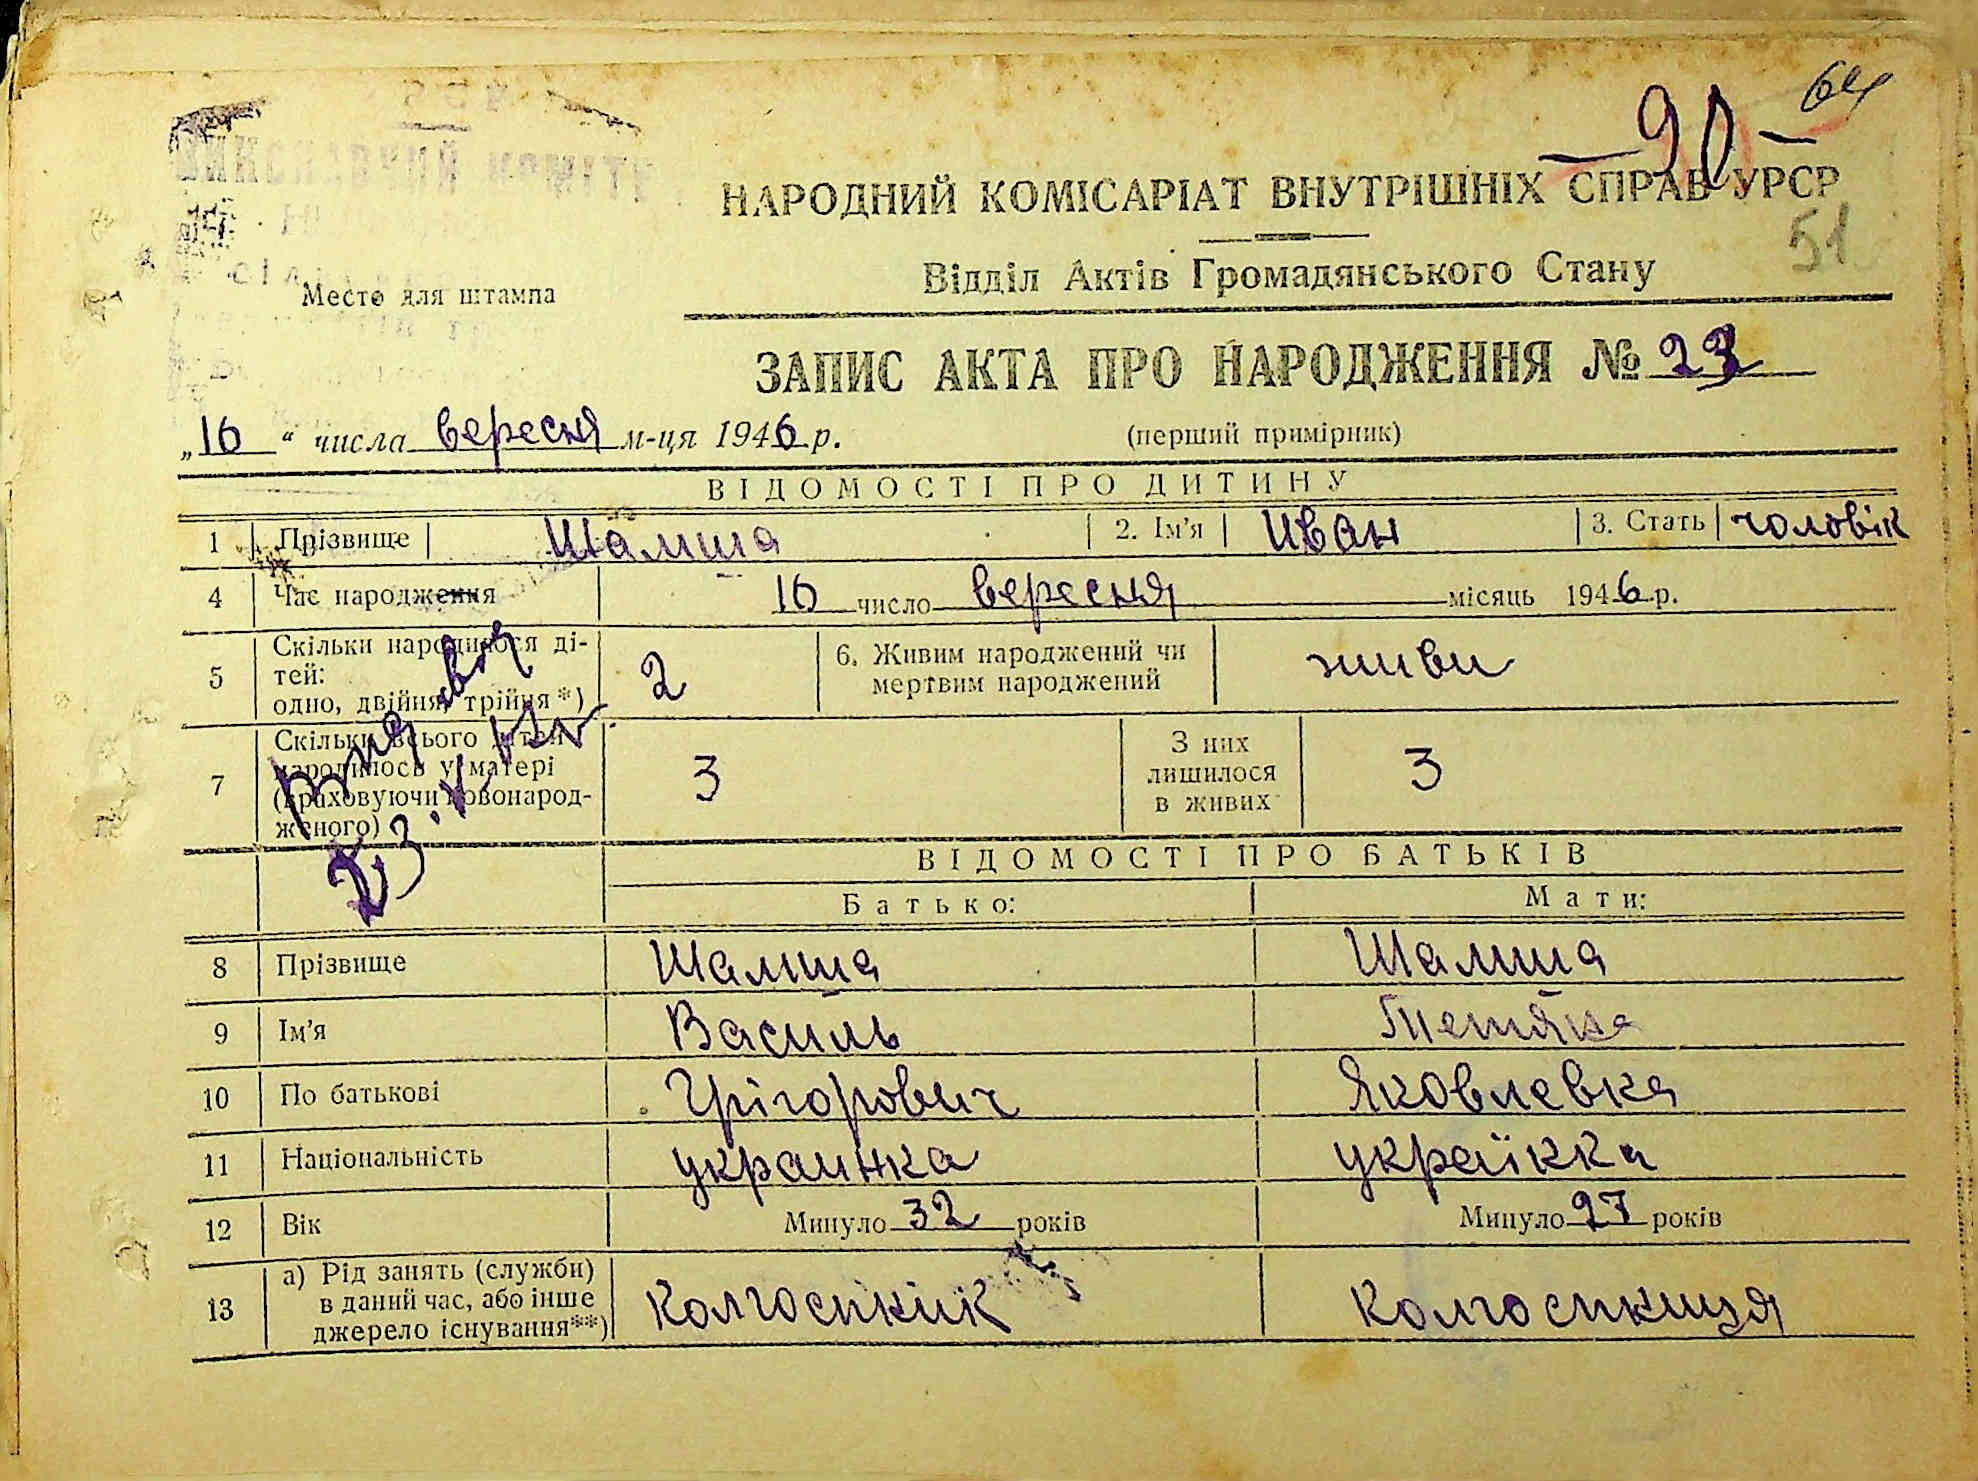 64
— 90 —
ВИКОНАВЧИЙ КОМІТЕТ
НАРОДНИЙ КОМІСАРІАТ ВНУТРІШНІХ СПРАВ УРСР
51
Відділ Актів Громадянського Стану
Место для штампа
ЗАПИС АКТА ПРО НАРОДЖЕННЯ № 23
„16“ числа вересня м-ця 1946 р. (перший примірник)
ВІДОМОСТІ ПРО ДИТИНУ
1 Прізвище Шамша 2. Ім'я Иван 3. Стать чоловік
4 Час народження 16 число вересня місяць 1946 р.
5 Скільки народилося ді-
тей:
одно, двійня, трійня*) 2 6. Живим народжений чи
мертвим народжений живи
7 Скільки всього дітей
народилось у матері
(враховуючи новонарод-
женого) 3 З них
лишилося
в живих 3
23.
ВІДОМОСТІ ПРО БАТЬКІВ
Батько: Мати:
8 Прізвище Шамша Шамша
9 Ім'я Василь Тетяна
10 По батькові Грігорович Яковлевна
11 Національність украинка украінка
12 Вік Минуло 32 років Минуло 27 років
13 а) Рід занять (служби)
в даний час, або інше
джерело існування**) Колгоспник Колгоспниця